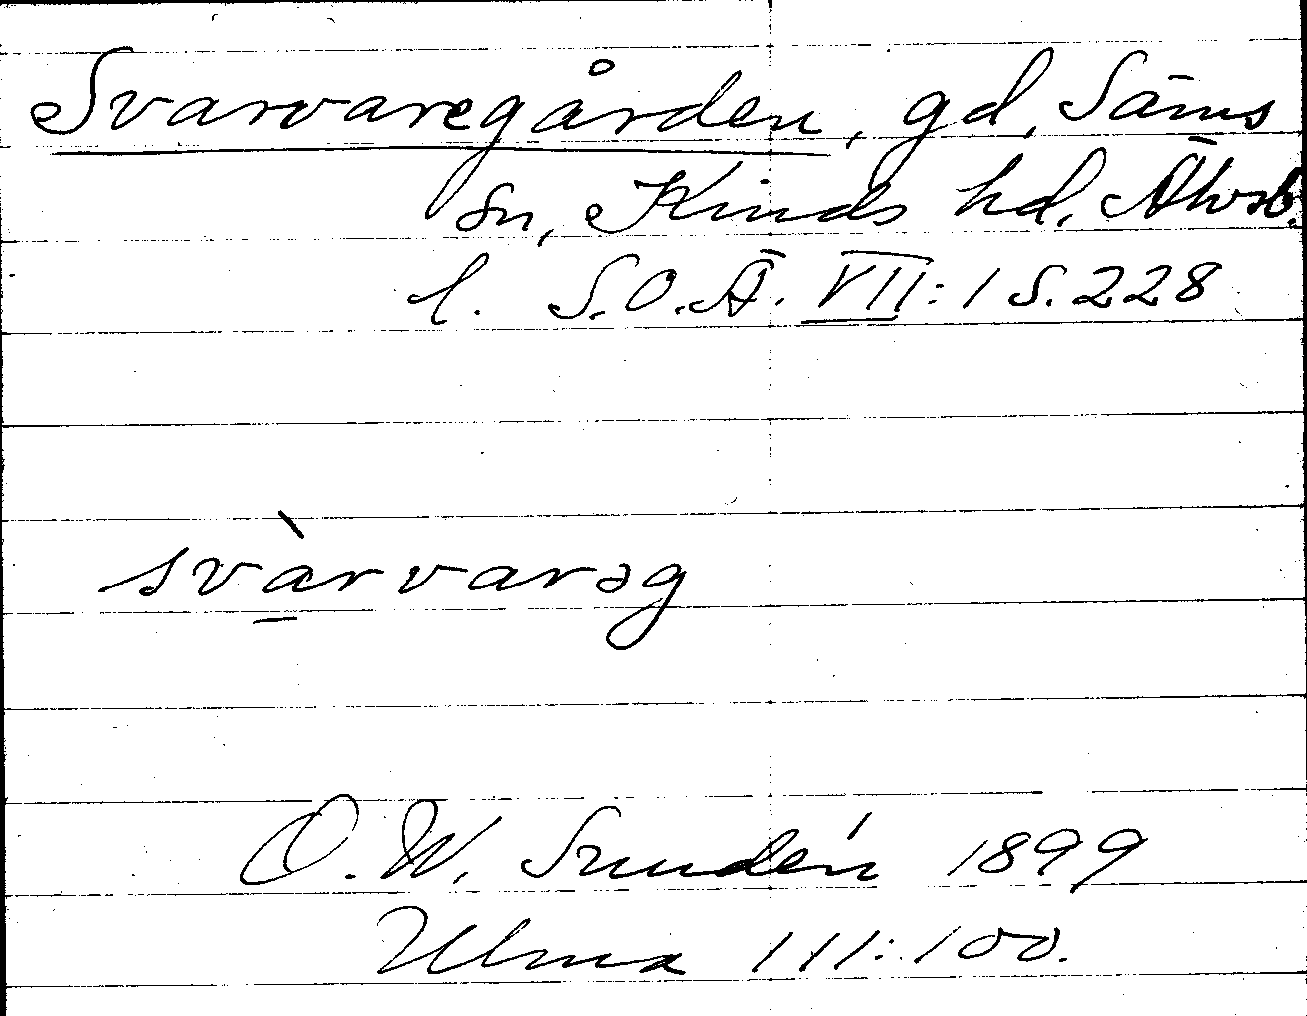 Svarvaregården, gd, Säms
sn, Kinds hd, Älvsb.
l. S.O.Ä. VII:1 S.228
svàrvarəg
O.W. Sundén 1899
Ulma 111:100.